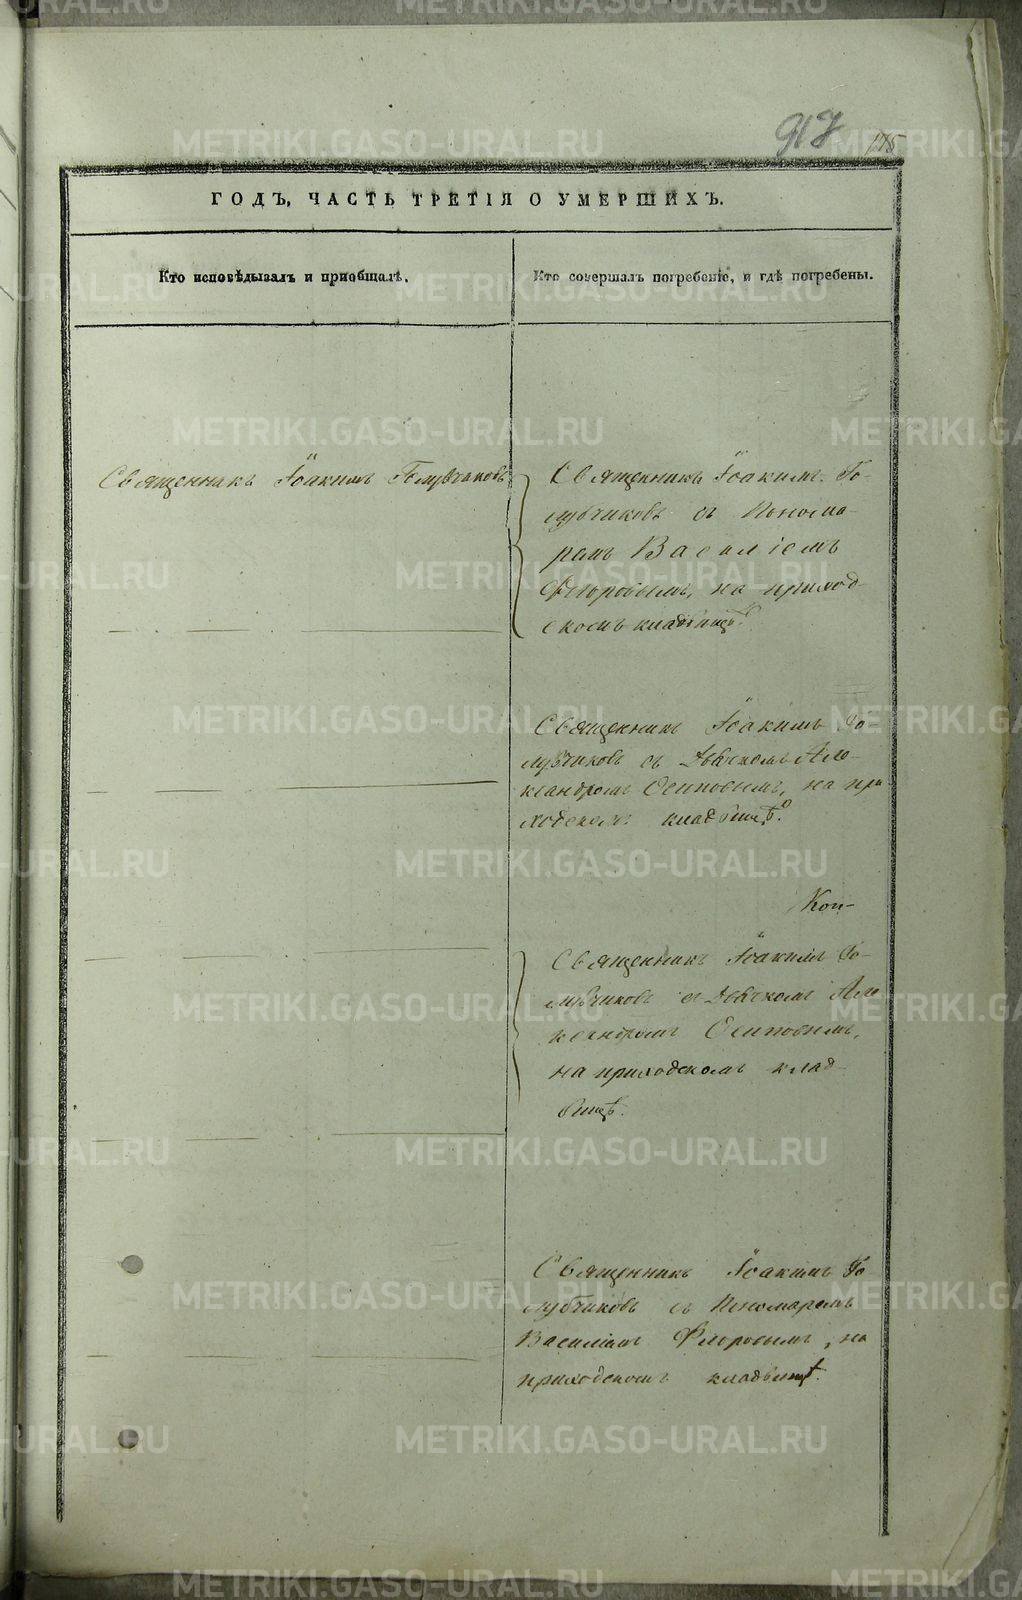 917
178
ГОДЪ, ЧАСТЬ ТРЕТІЯ О УМЕРШИХЪ.
Кто исповѣдывалъ и пріобщалъ.
Кто совершалъ погребеніе, и гдѣ погребены.
Священникъ Іоакимъ Голубчиковъ
Священникъ Іоакимъ Го-
лубчиковъ съ Понома-
ремъ Василіемъ
Флоровымъ, на приход-
скомъ кладбищѣ.
Священникъ Іоакимъ Го-
лубчиковъ съ Дьячкомъ Але-
ксандромъ Осиповымъ, на при
ходскомъ кладбищѣ.
Кон-
Священникъ Іоакимъ Го-
лубчиковъ съ Дьячкомъ Але
ксандромъ Осиповымъ,
на приходскомъ клад-
бищѣ.
Священникъ Іоакимъ Го
лубчиковъ съ Пономаремъ
Василіемъ Флоровымъ, на
приходскомъ кладбищѣ.
METRIKI.GASO-URAL.RU